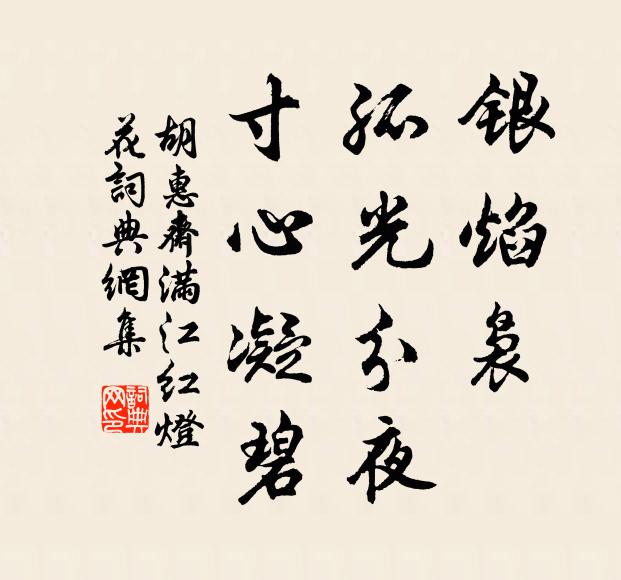 銀焰裊
孤光分夜
寸心凝碧
胡惠齋滿江紅燈
花詞典網集
詞典
网印